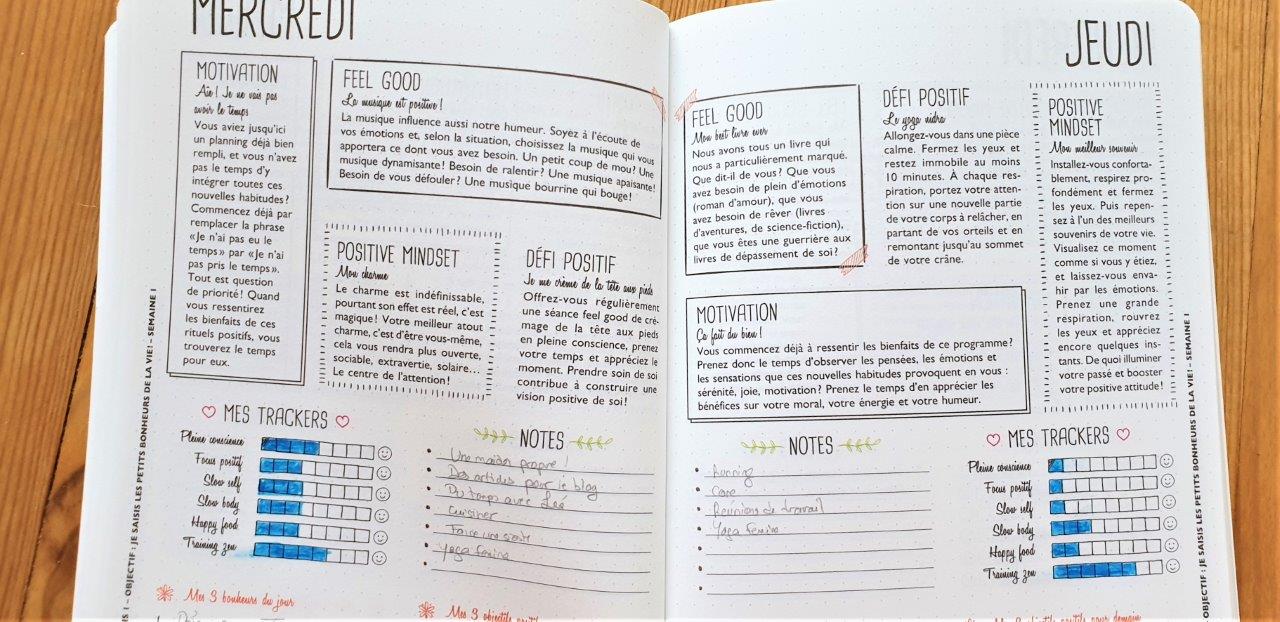 MERCREDI
MOTIVATION
Aïe ! Je ne vais pas
avoir le temps
Vous aviez jusqu'ici
un planning déjà bien
rempli, et vous n'avez
pas le temps d'y
intégrer toutes ces
nouvelles habitudes ?
Commencez déjà par
remplacer la phrase
«Je n'ai pas eu le
temps» par «Je n'ai
pas pris le temps».
Tout est question
de priorité ! Quand
vous ressentirez
les bienfaits de ces
rituels positifs, vous
trouverez le temps
pour eux.
FEEL GOOD
La musique est positive !
La musique influence aussi notre humeur. Soyez à l'écoute de
vos émotions et, selon la situation, choisissez la musique qui vous
apportera ce dont vous avez besoin. Un petit coup de mou ? Une
musique dynamisante ! Besoin de ralentir ? Une musique apaisante !
Besoin de vous défouler ? Une musique bourrine qui bouge !
POSITIVE MINDSET
Mon charme
Le charme est indéfinissable,
pourtant son effet est réel, c'est
magique ! Votre meilleur atout
charme, c'est d'être vous-même,
cela vous rendra plus ouverte,
sociable, extravertie, solaire...
Le centre de l'attention !
DÉFI POSITIF
Je me crème de la tête aux pieds
Offrez-vous régulièrement
une séance feel good de cré-
mage de la tête aux pieds
en pleine conscience, prenez
votre temps et appréciez le
moment. Prendre soin de soi
contribue à construire une
vision positive de soi !
MES TRACKERS
Pleine conscience
Focus positif
Slow self
Slow body
Happy food
Training zen
NOTES
Une maison propre !
Des articles pour le blog
Du temps avec Léé
Cuisiner
Faire une
Yoga Femina
Mes 3 bonheurs du jour
Mes 3 objectifs
1 – OBJECTIF : JE SAISIS LES PETITS BONHEURS DE LA VIE! – SEMAINE 1
JEUDI
FEEL GOOD
Mon best livre ever
Nous avons tous un livre qui
nous a particulièrement marqué.
Que dit-il de vous ? Que vous
avez besoin de plein d'émotions
(roman d'amour), que vous
avez besoin de rêver (livres
d'aventures, de science-fiction),
que vous êtes une guerrière aux
livres de dépassement de soi ?
DÉFI POSITIF
Le yoga nidra
Allongez-vous dans une pièce
calme. Fermez les yeux et
restez immobile au moins
10 minutes. À chaque res-
piration, portez votre atten-
tion sur une nouvelle partie
de votre corps à relâcher, en
partant de vos orteils et en
remontant jusqu'au sommet
de votre crâne.
POSITIVE
MINDSET
Mon meilleur souvenir
Installez-vous conforta-
blement, respirez pro-
fondément et fermez
les yeux. Puis repen-
sez à l'un des meilleurs
souvenirs de votre vie.
Visualisez ce moment
comme si vous y étiez,
et laissez-vous enva-
hir par les émotions.
Prenez une grande
respiration, rouvrez
les yeux et appréciez
encore quelques ins-
tants. De quoi illuminer
votre passé et booster
votre positive attitude !
MOTIVATION
Ça fait du bien !
Vous commencez déjà à ressentir les bienfaits de ce programme ?
Prenez donc le temps d'observer les pensées, les émotions et
les sensations que ces nouvelles habitudes provoquent en vous :
sérénité, joie, motivation ? Prenez le temps d'en apprécier les
bénéfices sur votre moral, votre énergie et votre humeur.
NOTES
Running
Réunions de travail
Yoga Femina
MES TRACKERS
Pleine conscience
Focus positif
Slow self
Slow body
Happy food
Training zen
Mes 3 objectifs positifs pour demain
OBJECTIF : JE SAISIS LES PETITS BONHEURS DE LA VIE! – SEMAINE 1